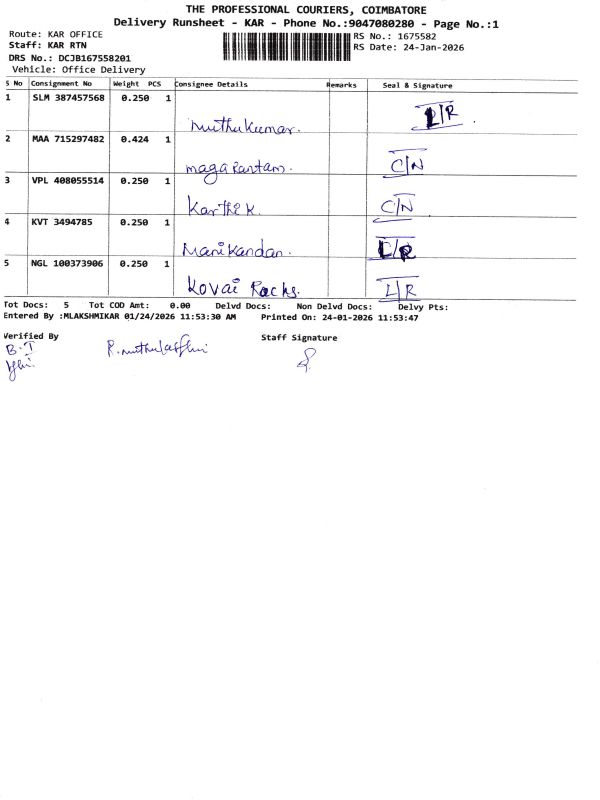 THE PROFESSIONAL COURIERS, COIMBATORE
Delivery Runsheet - KAR - Phone No.:9047080280 - Page No.:1
Route: KAR OFFICE
RS No.: 1675582
Staff: KAR RTN
RS Date: 24-Jan-2026
DRS No.: DCJB167558201
Vehicle: Office Delivery
S No Consignment No Weight PCS Consignee Details Remarks Seal & Signature
1 SLM 387457568 0.250 1 Muthukumar. L/R
2 MAA 715297482 0.424 1 C/N
3 VPL 408055514 0.250 1 Karthik. C/N
4 KVT 3494785 0.250 1 Manikandan. L/R
5 NGL 100373906 0.250 1 Kovai Racks. L/R
Tot Docs: 5 Tot COD Amt: 0.00 Delvd Docs: Non Delvd Docs: Delvy Pts:
Entered By :MLAKSHMIKAR 01/24/2026 11:53:30 AM Printed On: 24-01-2026 11:53:47
Verified By Staff Signature
B.I